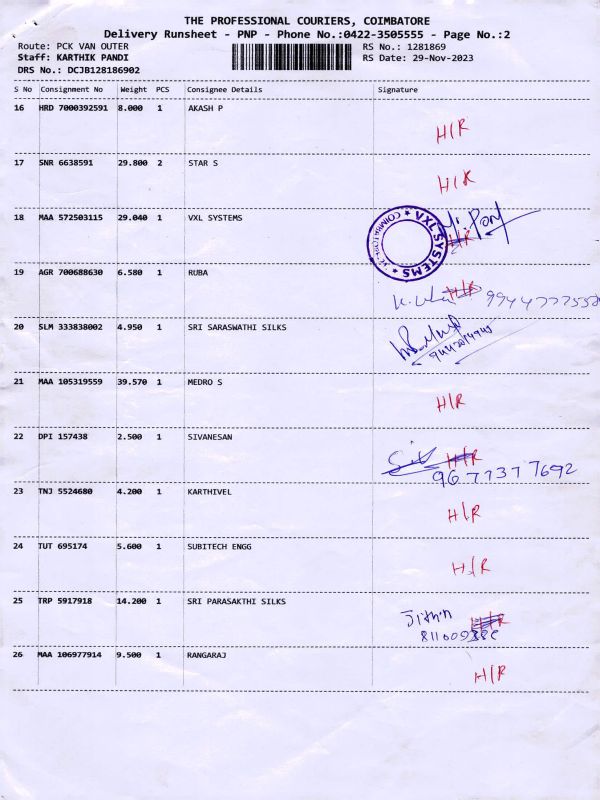 THE PROFESSIONAL COURIERS, COIMBATORE
Delivery Runsheet - PNP - Phone No.:0422-3505555 - Page No.:2
Route: PCK VAN OUTER RS No.: 1281869
Staff: KARTHIK PANDI RS Date: 29-Nov-2023
DRS No.: DCJB128186902
S No Consignment No Weight PCS Consignee Details Signature
16 HRD 7000392591 8.000 1 AKASH P
H/R
17 SNR 6638591 29.800 2 STAR S
H/R
18 MAA 572503115 29.040 1 VXL SYSTEMS
VXL SYSTEMS
H/R
19 AGR 700688630 6.580 1 RUBA
H/R
20 SLM 333838002 4.950 1 SRI SARASWATHI SILKS
21 MAA 105319559 39.570 1 MEDRO S
H/R
22 DPI 157438 2.500 1 SIVANESAN
H/R
9677377692
23 TNJ 5524680 4.200 1 KARTHIVEL
H/R
24 TUT 695174 5.600 1 SUBITECH ENGG
H/R
25 TRP 5917918 14.200 1 SRI PARASAKTHI SILKS
Jithin H/R
26 MAA 106977914 9.500 1 RANGARAJ
H/R